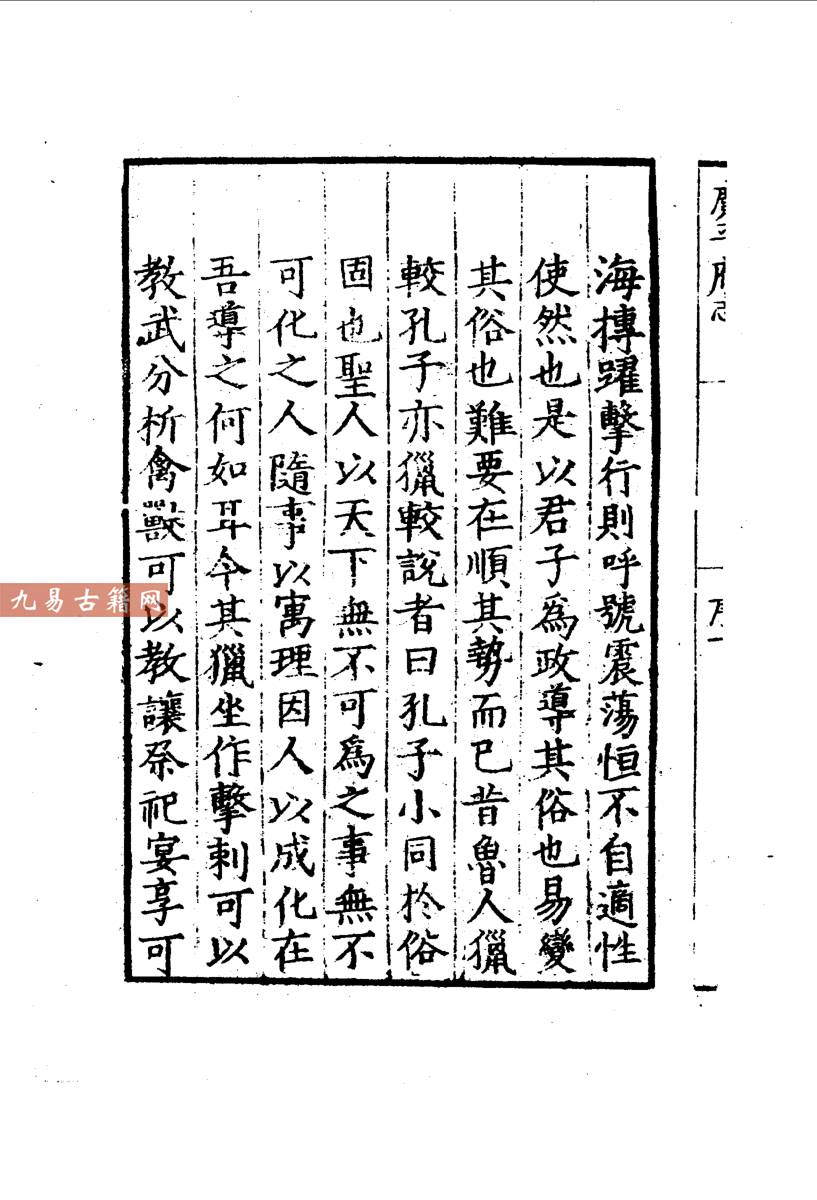 廣平府志
序一
海摶躍擊行則呼號震蕩恒不自適性
使然也是以君子爲政導其俗也易變
其俗也難要在順其勢而已昔魯人獵
較孔子亦獵較說者曰孔子小同於俗
固也聖人以天下無不可爲之事無不
可化之人隨事以寓理因人以成化在
吾導之何如耳今其獵坐作擊刺可以
教武分析禽獸可以教讓祭祀宴享可
九易古籍网